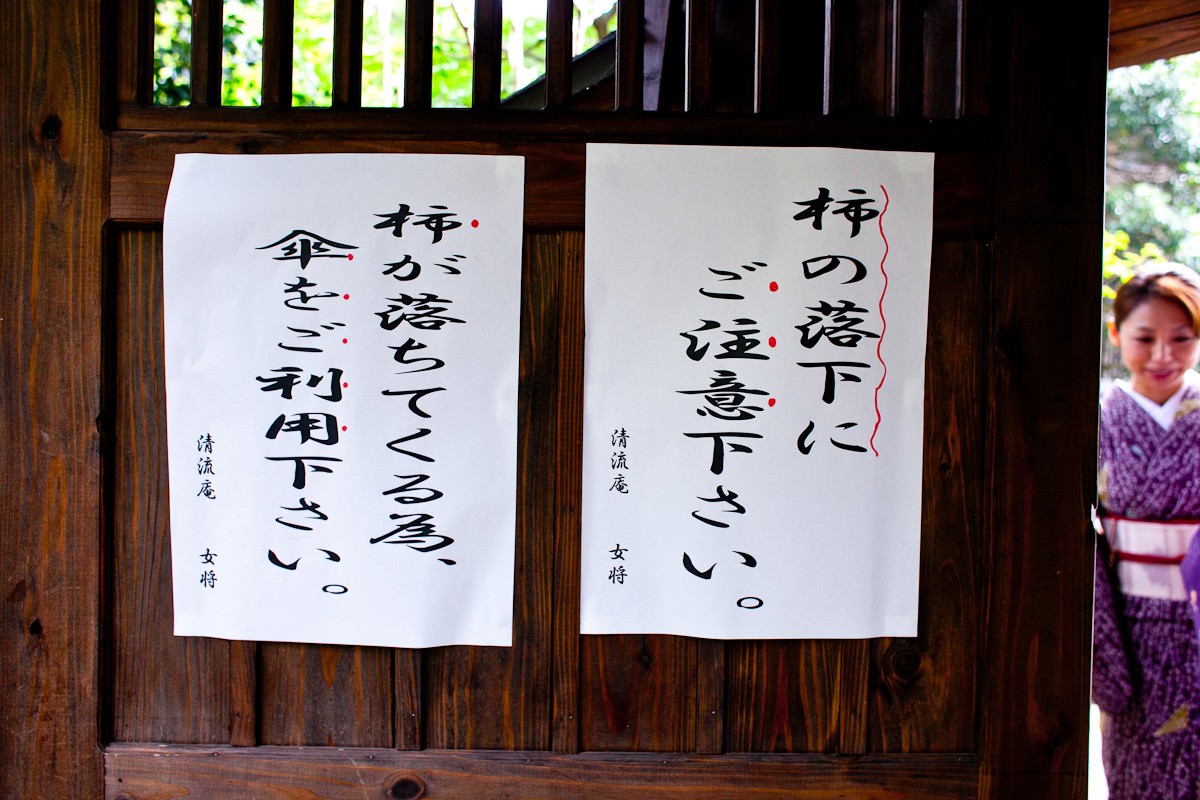 柿の落下に
ご注意下さい。
清流庵 女将
柿が落ちてくる為、
傘をご利用下さい。
清流庵 女将